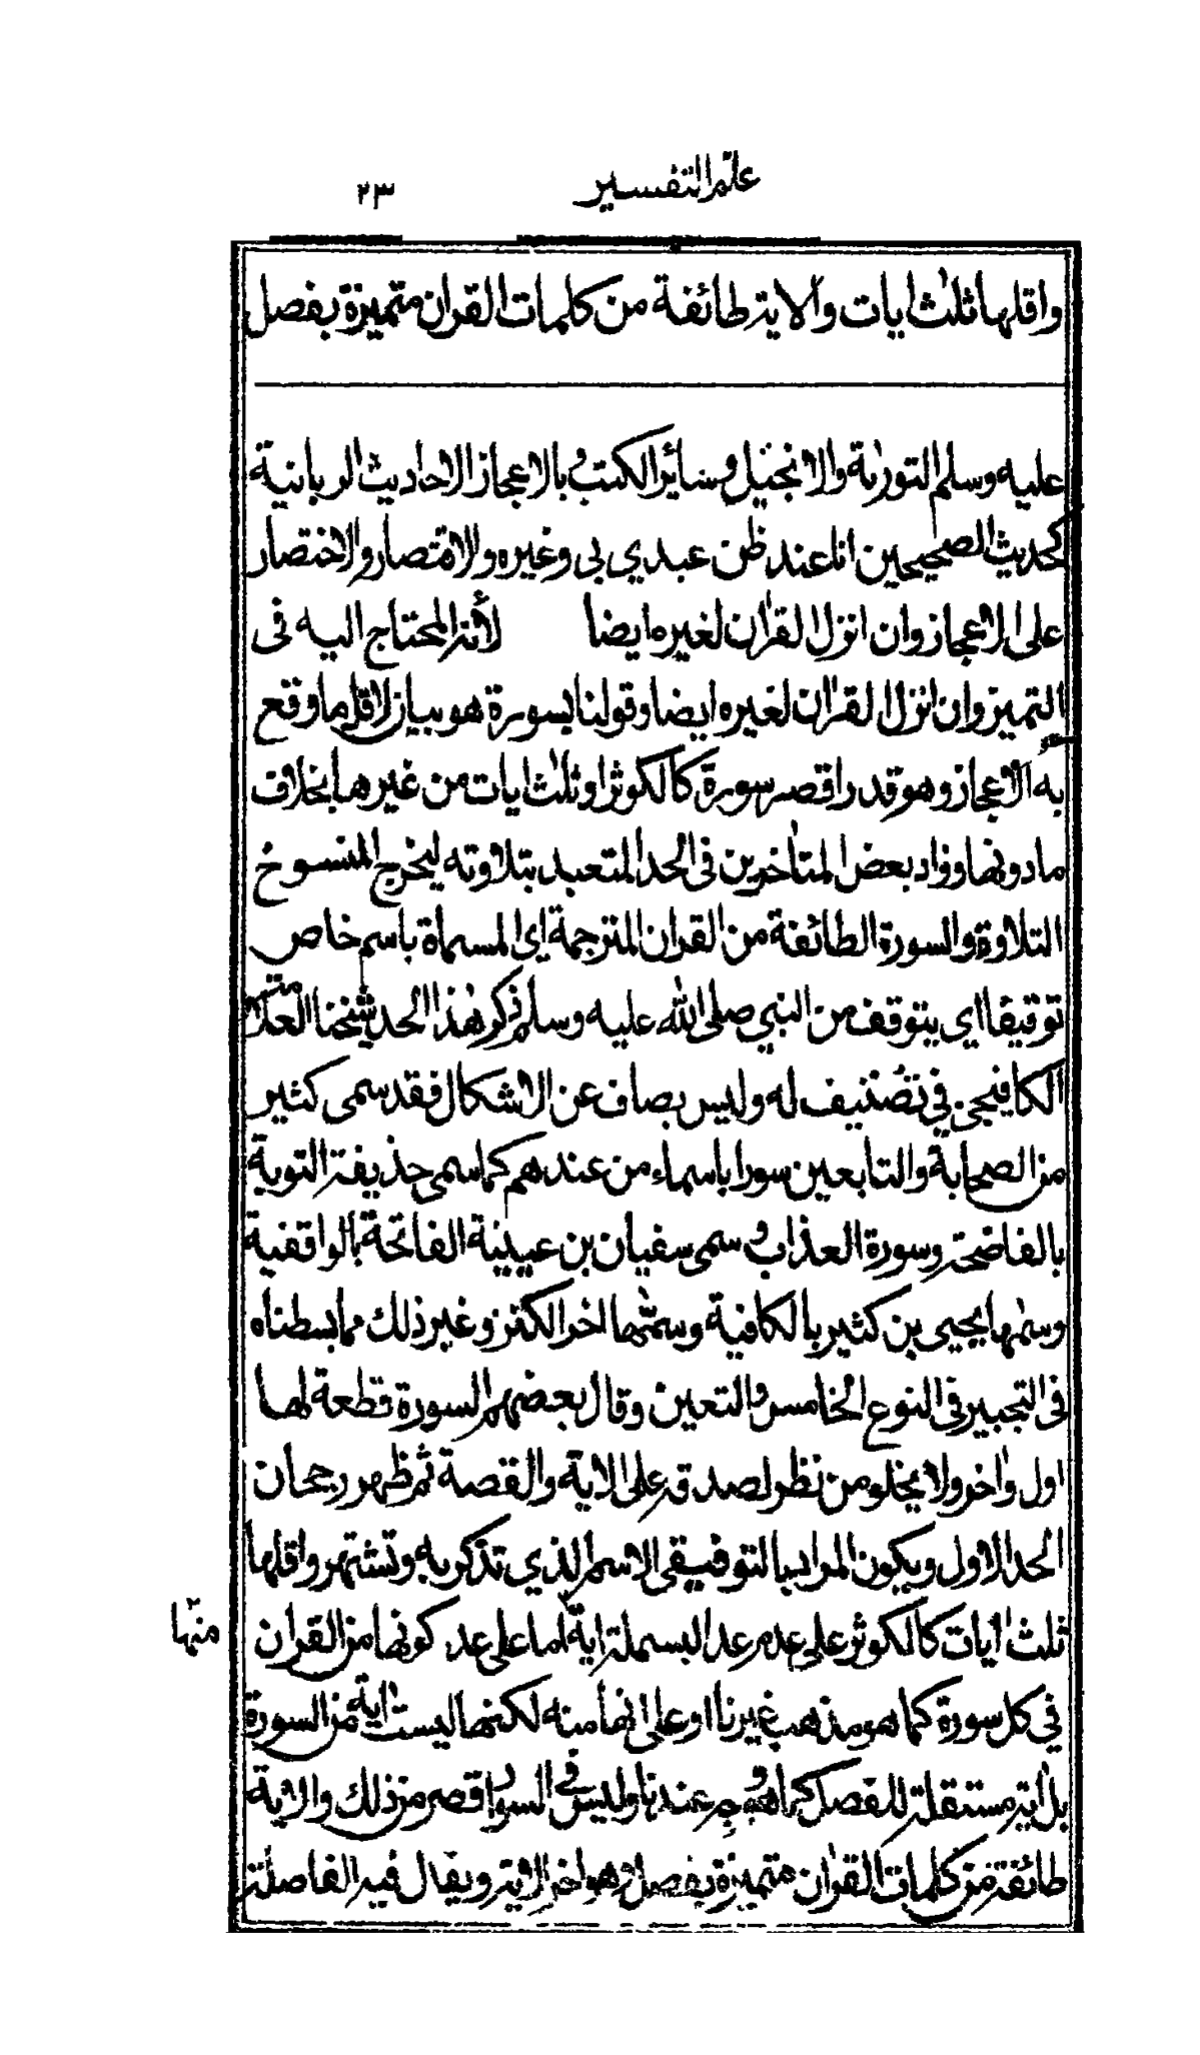 علم التفسير
٢٣
واقلها ثلث ايات والاية طائفة من كلمات القران متميزة بفصل
عليه وسلم التورىة والانجيل وسائر الكتب وبالاعجاز الاحاديث الربانية
كحديث الصحيحين انا عند ظن عبدي بي وغيره والاقتصار والاختصار
على الاعجاز وان انزل القران لغيره ايضا لأنه المحتاج اليه فى
التميز وان انزل القران لغيره ايضا وقولنا بسورة هو بيان لاقل ما وقع
به الاعجاز وهو قدر اقصر سورة كالكوثر او ثلث ايات من غيرها بخلاف
ما دونها وزاد بعض المتأخرين فى الحد المتعبد بتلاوته ليخرج المنسوخ
التلاوة والسورة الطائفة من القران المترجمة اي المسماة باسم خاص
توقيفا اي بتوقف من النبي صلى الله عليه وسلم ذكر هذا الحد شيخنا العلامة
الكافيجي في تصنيف له وليس بصاف عن الاشكال فقد سمى كثير
من الصحابة والتابعين سورا باسماء من عندهم كما سمى حذيفة التوبة
بالفاضحة وسورة العذاب وسمى سفيان بن عيينة الفاتحة بالواقفية
وسمٰها يحيى بن كثير بالكافية وسمّٰها اخر الكنز وغير ذلك مما بسطناه
فى التحبير فى النوع الخامس والتعين وقال بعضهم السورة قطعة لها
اول واخر ولا يخلو من نظر لصدقه على الاية والقصة ثم ظهر رجحان
الحد الاول ويكون المراد بالتوقيفى الاسم الذي تذكر به وتشتهر واقلها
ثلث ايات كالكوثر على عدم عد البسملة اية اما على عد كونها من القران
منها
في كل سورة كما هو مذهب غيرنا او على انها منه لكنها ليست اية من السورة
بل اية مستقلة للفصل كما هو وجه عندنا وليس فى السور اقصر من ذلك والاية
طائفة من كلمات القران متميزة بفصل وهو اخر الاية ويقال فيه الفاصلة